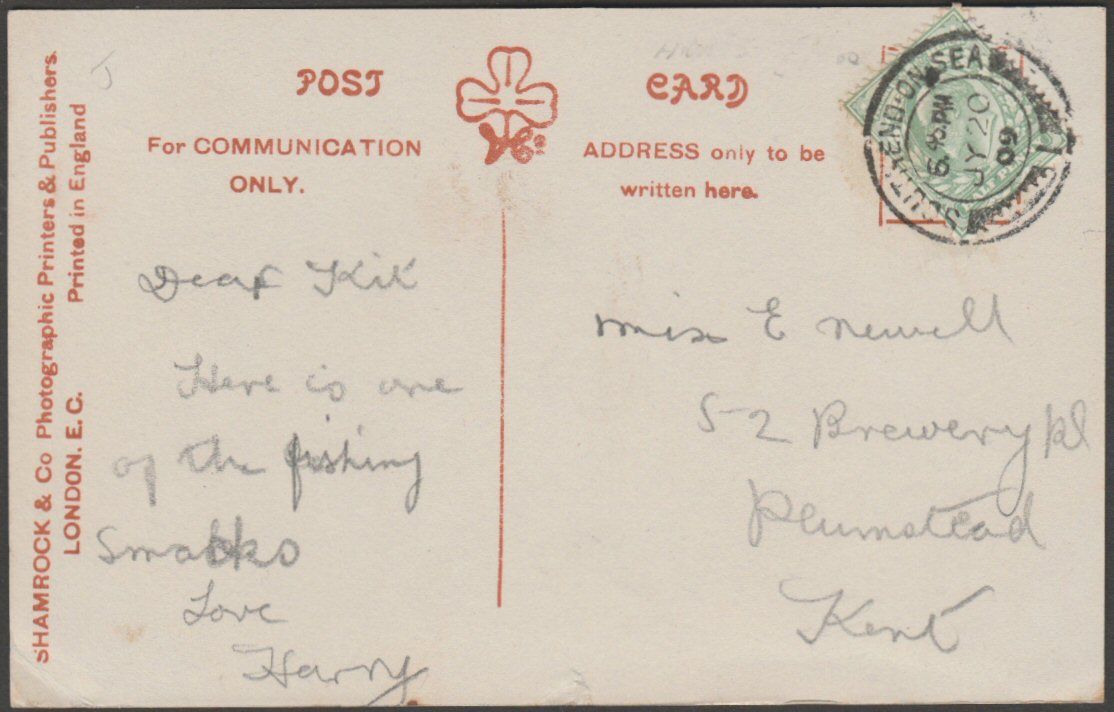 SHAMROCK & Co Photographic Printers & Publishers.
LONDON. E. C. Printed in England
POST CARD
For COMMUNICATION
ONLY.
ADDRESS only to be
written here.
SOUTHEND-ON-SEA
6.45 PM
JY 20
09
Dear Kik
Here is one
of the fishing
Smakks
Love
Harry
Miss E Newell
52 Brewery Rd
Plumstead
Kent